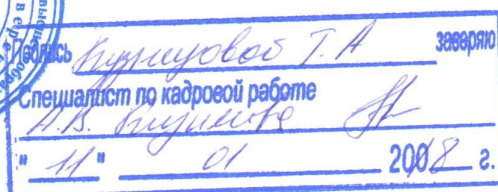 Подпись Кузнецовой Т.А заверяю
Специалист по кадровой работе
А.В.
" 11 " 01 2008 г.